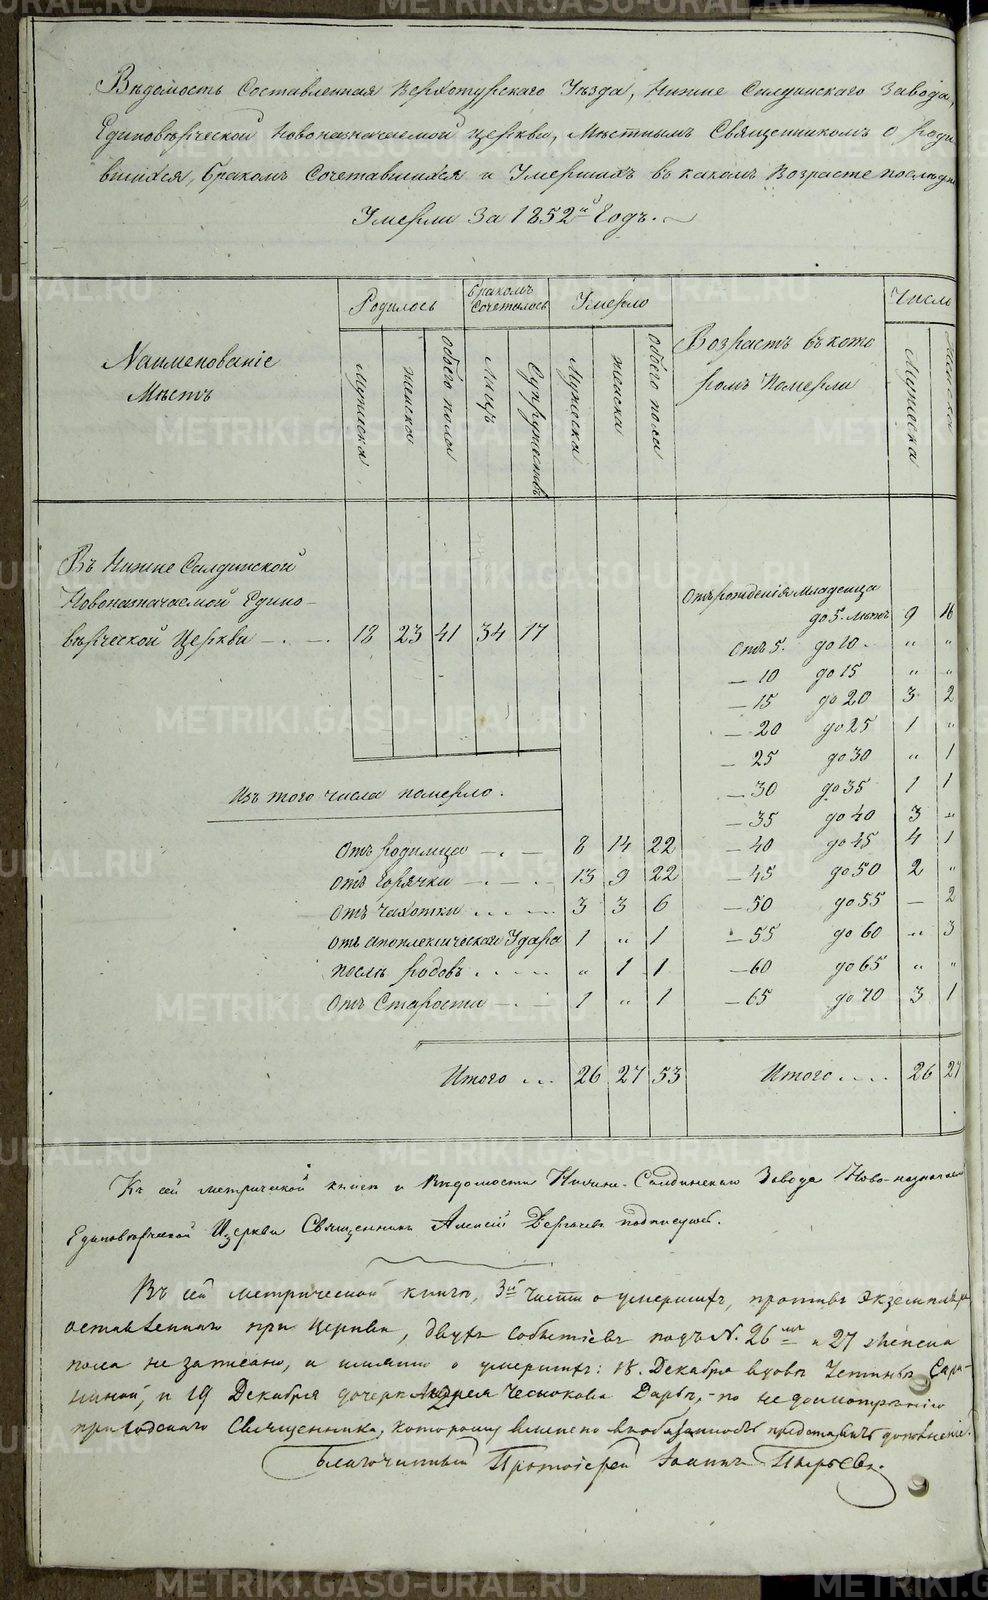 Вѣдомость Составленная Верхотурскаго Уѣзда, Нижне Салдинскаго Завода,
Единовѣрческой Новоназначаемой Церкви, Мѣстнымъ Священникомъ о роди
вшихся, бракомъ Сочетавшихся и Умершихъ въ какомъ Возрасте последн
Умерли За 1852й Годъ.
Родилось
бракомъ Сочеталось
Умерло
Число
Наименованіе Мѣстъ
мужеска
женска
обоего пола
Лицъ
Супружествъ
Мужеска
женска
обоего пола
Возрастъ въ кото
ромъ Померли
Мужеска
женска
Въ Нижне Салдинской
Новоназначаемой Едино-
вѣрческой Церкви 18 23 41 34 17
Изъ того числа померло.
Отъ родимца 8 14 22
Отъ Горячки 13 9 22
Отъ Чахотки 3 3 6
Отъ апоплексическаго Удара 1 " 1
после родовъ " 1 1
Отъ Старости 1 " 1
Итого 26 27 53
Отъ рожденія младенца
до 5. лѣтъ 9 16
Отъ 5. до 10. " "
— 10 до 15 " "
— 15 до 20 3 2
— 20 до 25 1 "
— 25 до 30 " 1
— 30 до 35 1 1
— 35 до 40 3 "
— 40 до 45 4 1
— 45 до 50 2 "
— 50 до 55 — 2
— 55 до 60 " 3
— 60 до 65 " "
— 65 до 70 3 1
Итого 26 27
Къ сей метрической книге и Ведомости Нижне-Салдинскаго Завода Ново-назначаем
Единоверческой Церкви Священникъ Алексій Дергачевъ подписуюсь.
Въ сей метрической книгѣ, 3й части о умершихъ, противъ экземпляра
оставленнаго при Церкви, двухъ событіевъ подъ N. 26 и 27 женска
пола не записано, и именно о умершихъ: 18. Декабря вдовѣ Устиньѣ Сари-
ной, и 19 Декабря дочери Андрея Чеснокова Дарьѣ, - по недосмотренію
приходскаго Священника, которому вменено въ обязанность представить дополненіе.
Благочинный Протоіерей Іоаннъ
METRIKI.GASO-URAL.RU